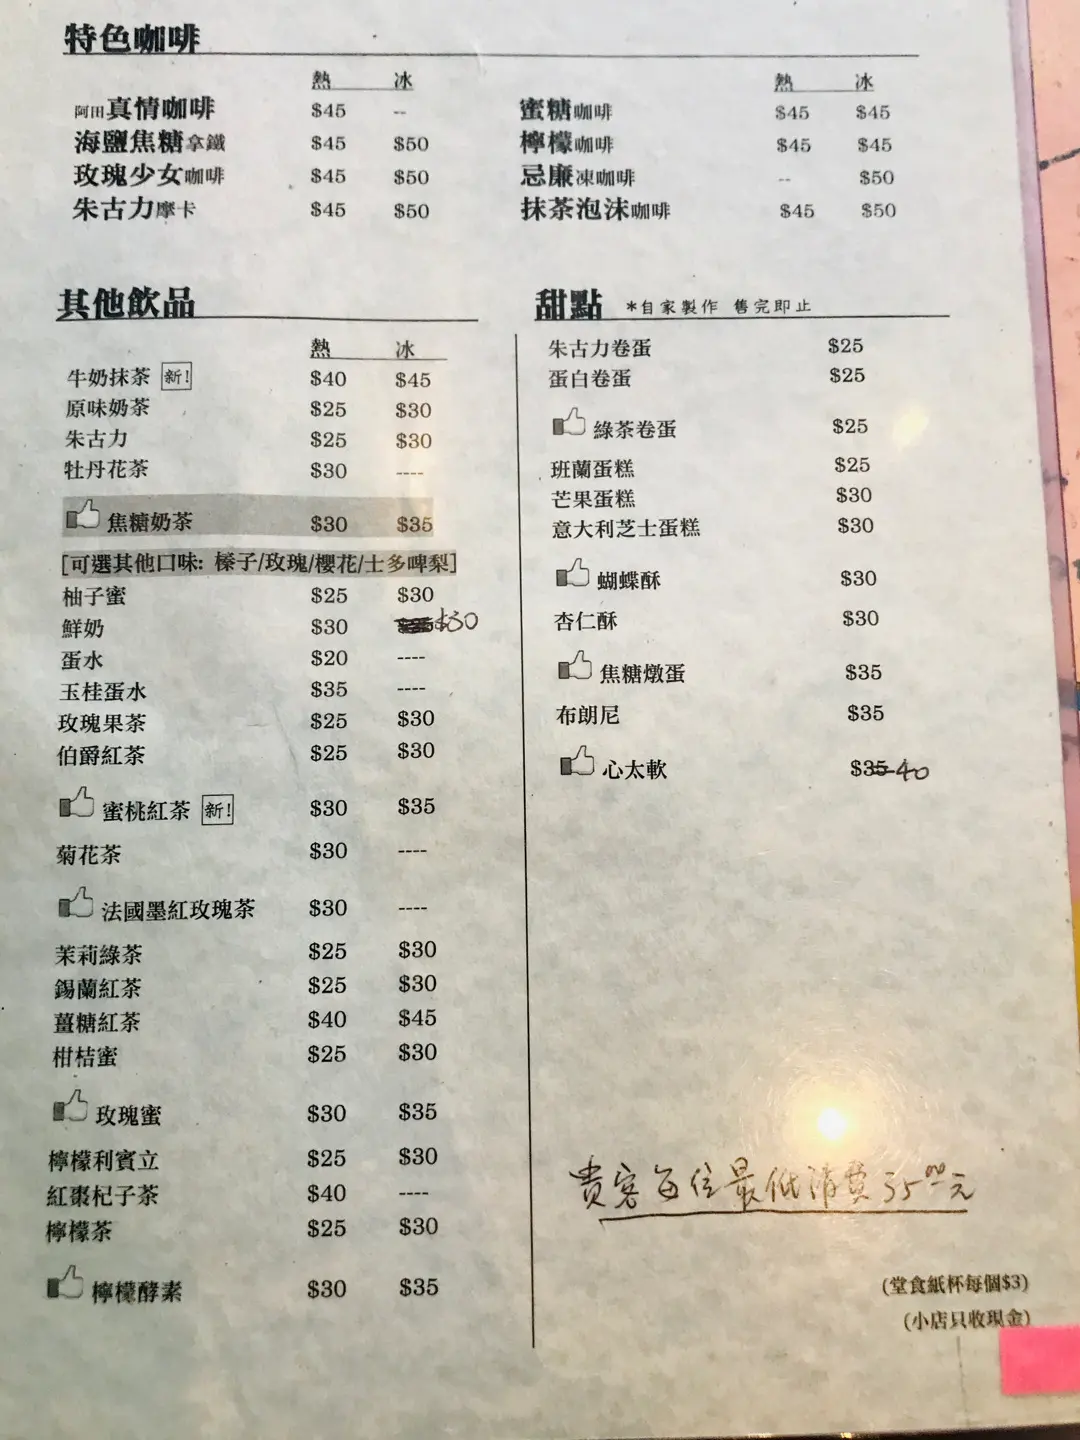 特色咖啡
熱 冰
阿田真情咖啡 $45 --
海鹽焦糖拿鐵 $45 $50
玫瑰少女咖啡 $45 $50
朱古力摩卡 $45 $50
熱 冰
蜜糖咖啡 $45 $45
檸檬咖啡 $45 $45
忌廉凍咖啡 -- $50
抹茶泡沫咖啡 $45 $50
其他飲品
熱 冰
牛奶抹茶 新! $40 $45
原味奶茶 $25 $30
朱古力 $25 $30
牡丹花茶 $30 ----
焦糖奶茶 $30 $35
[可選其他口味: 榛子/玫瑰/櫻花/士多啤梨]
柚子蜜 $25 $30
鮮奶 $30 $30
蛋水 $20 ----
玉桂蛋水 $35 ----
玫瑰果茶 $25 $30
伯爵紅茶 $25 $30
蜜桃紅茶 新! $30 $35
菊花茶 $30 ----
法國墨紅玫瑰茶 $30 ----
茉莉綠茶 $25 $30
錫蘭紅茶 $25 $30
薑糖紅茶 $40 $45
柑桔蜜 $25 $30
玫瑰蜜 $30 $35
檸檬利賓立 $25 $30
紅棗杞子茶 $40 ----
檸檬茶 $25 $30
檸檬酵素 $30 $35
甜點 *自家製作 售完即止
朱古力卷蛋 $25
蛋白卷蛋 $25
綠茶卷蛋 $25
班蘭蛋糕 $25
芒果蛋糕 $30
意大利芝士蛋糕 $30
蝴蝶酥 $30
杏仁酥 $30
焦糖燉蛋 $35
布朗尼 $35
心太軟 $35 40
貴客每位最低消費35.00元
(堂食紙杯每個$3)
(小店只收現金)